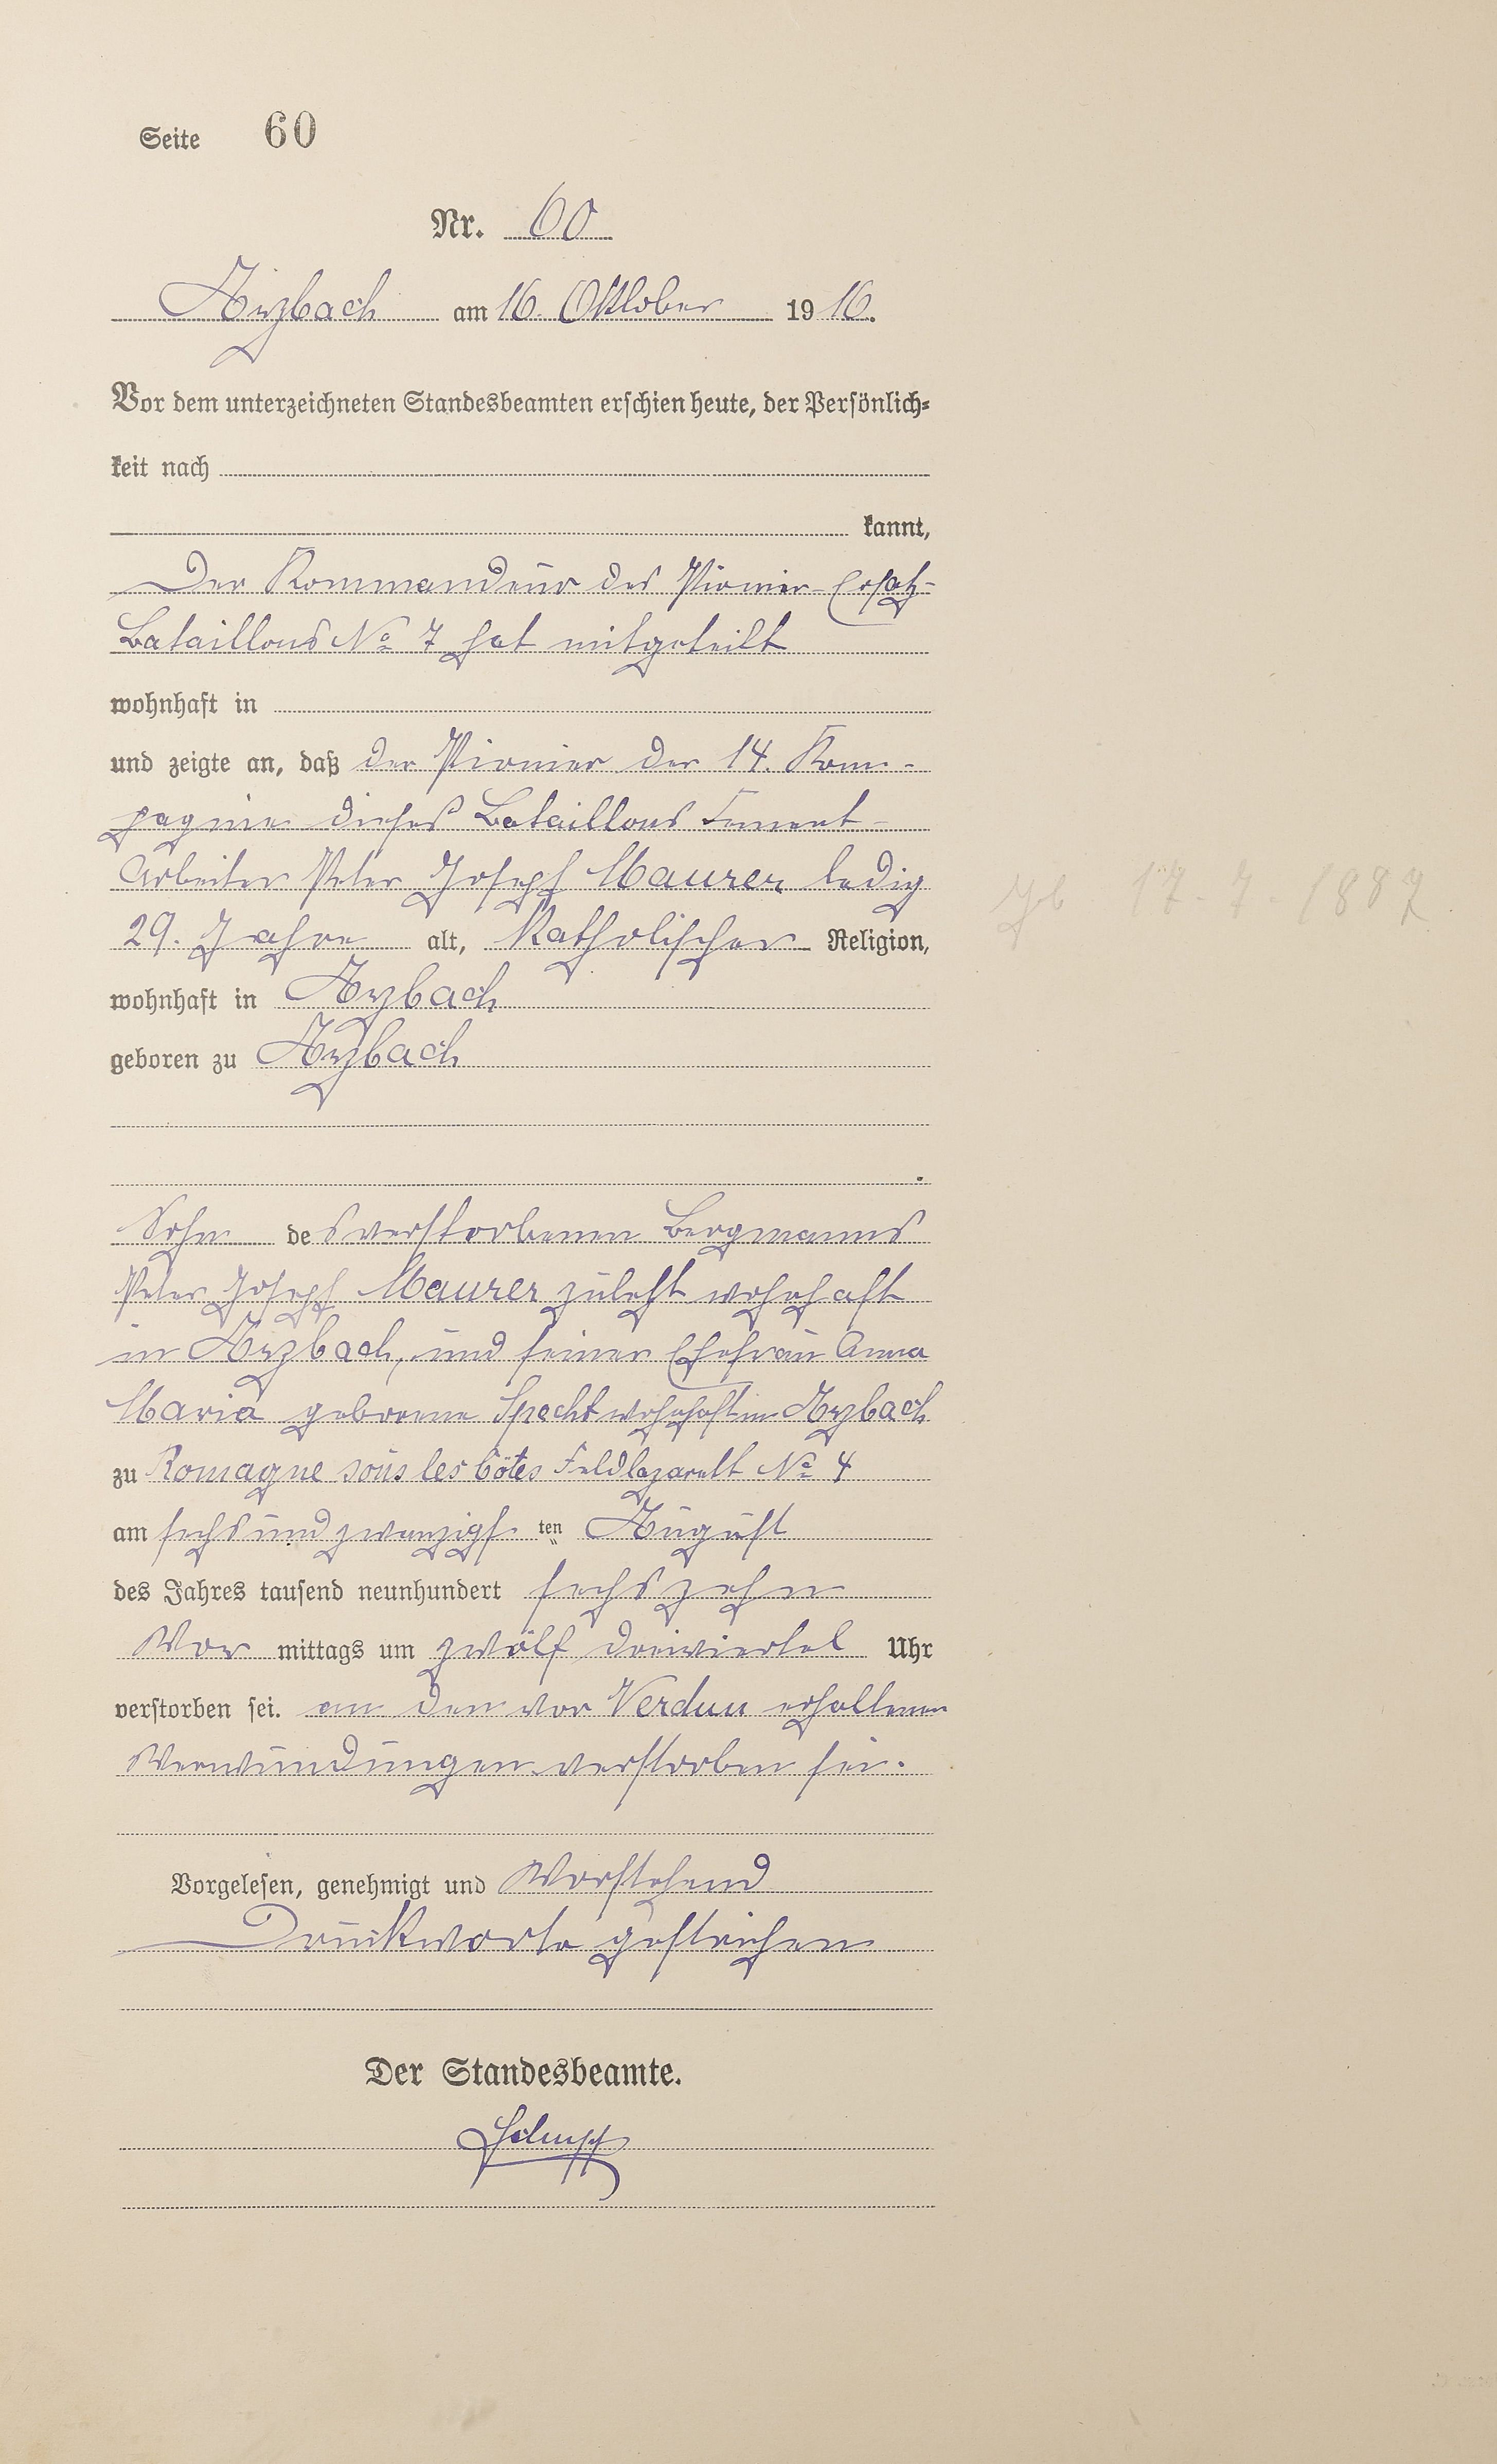 Seite 60
Nr. 60
Arzbach am 16. Oktober 1916.
Vor dem unterzeichneten Standesbeamten erschien heute, der Persönlich-
keit nach
kannt,
Der Kommandeur des Pionier-Ersatz-
Bataillons No 7 hat mitgeteilt
wohnhaft in
und zeigte an, daß der Pionier der 14. Kom-
pagnie dieses Bataillons Cement-
Arbeiter Peter Joseph Maurer ledig
29. Jahre alt, Katholischer Religion,
wohnhaft in Arzbach
geboren zu Arzbach
Sohn des verstorbenen Bergmanns
Peter Joseph Maurer zuletzt wohnhaft
in Arzbach, und seiner Ehefrau Anna
Maria geborene Specht wohnhaft in Arzbach
zu Romagne sous les Côtes Feldlazarett No 4
am sechsundzwanzigs ten August
des Jahres tausend neunhundert sechszehn
Vor mittags um zwölf dreiviertel Uhr
verstorben sei. an den vor Verdun erhaltenen
Verwundungen verstorben sei.
Vorgelesen, genehmigt und Vorstehend
Druckworte gestrichen
Der Standesbeamte.
Gb 17-7-1887